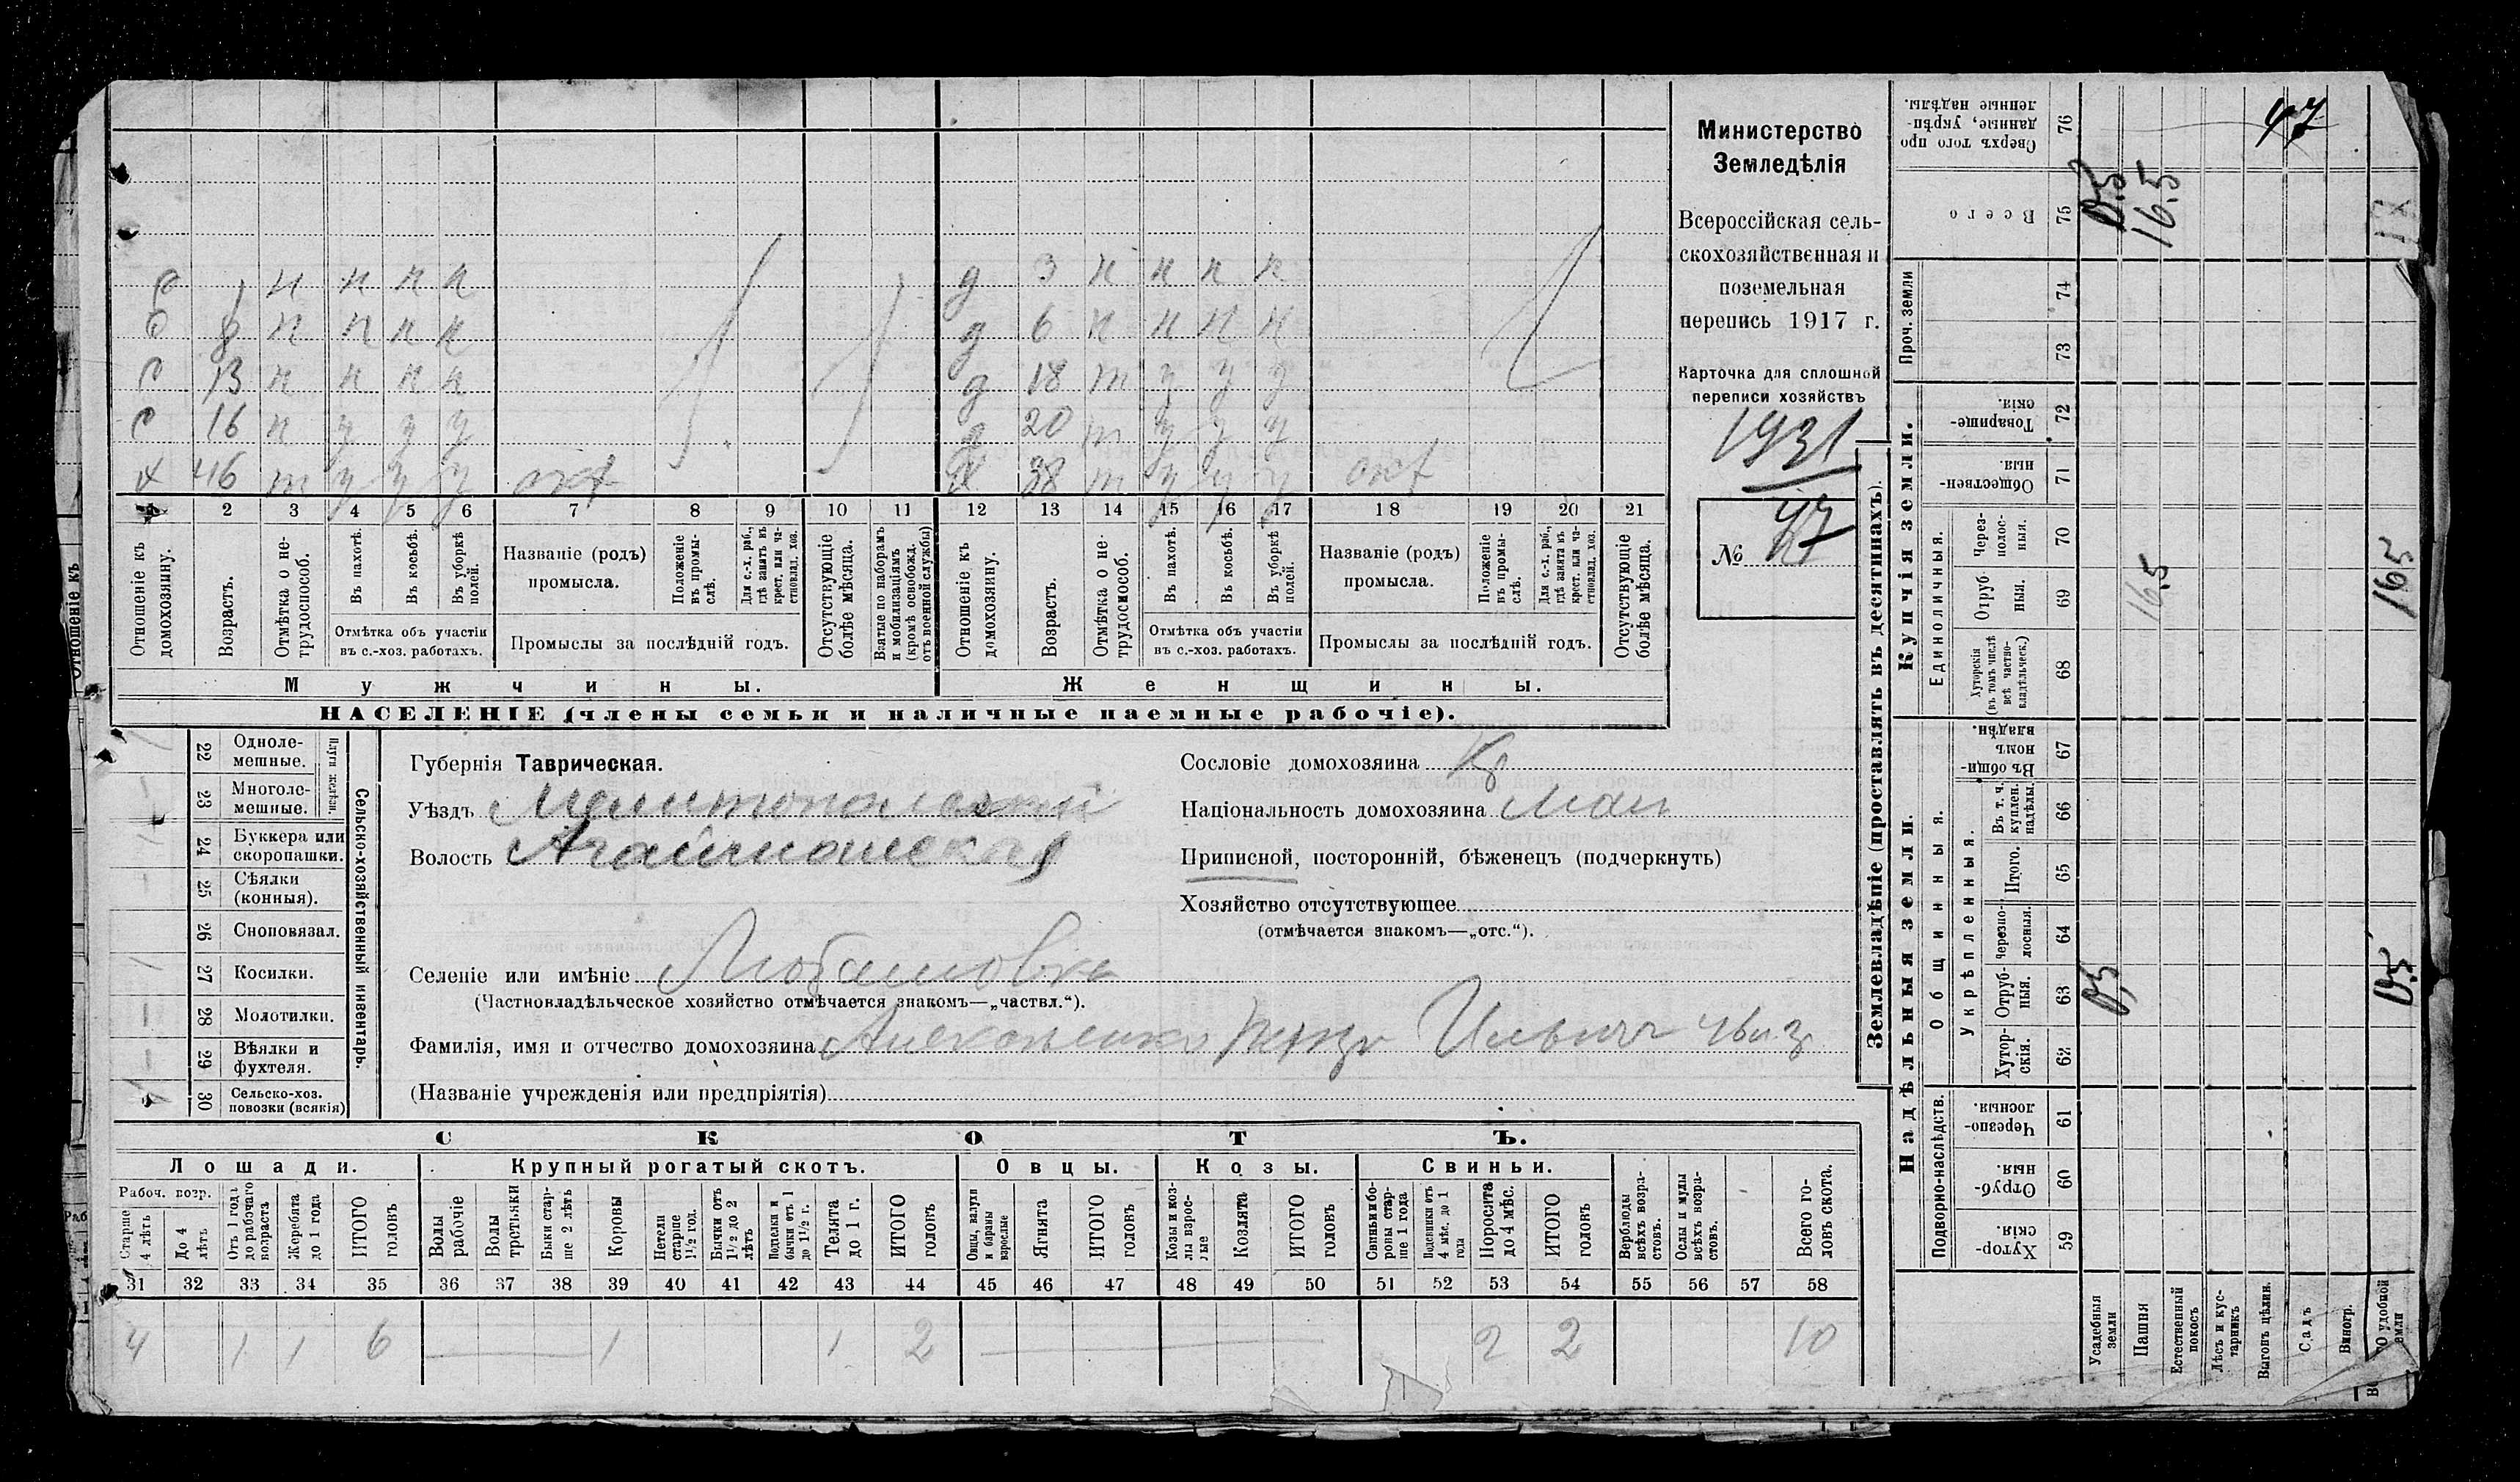 Министерство
Земледѣлія
Всероссійская сель-
скохозяйственная и
поземельная
перепись 1917 г.
Карточка для сплошной
переписи хозяйствъ
1931
№ 47
47
с н н н н д 3 н н н н
с 8 н н н н д 6 н н н н
с 13 н н н н д 18 т у у у
с 16 н у у у д 20 т у у у
х 46 т у у у 38 т у у у
1 2 3 4 5 6 7 8 9 10 11 12 13 14 15 16 17 18 19 20 21
Отношеніе къ домохозяину.
Возрастъ.
Отмѣтка о не-трудоспособ.
Въ пахотѣ.
Въ косьбѣ.
Въ уборкѣ полей.
Отмѣтка объ участіи
въ с.-хоз. работахъ.
Названіе (родъ)
промысла.
Положеніе въ промы-слѣ.
Для с.-х. раб., гдѣ занятъ въ крест. или ча-стновлад. хоз.
Промыслы за послѣдній годъ.
Отсутствующіе болѣе мѣсяца.
Взятые по наборамъ и мобилизаціямъ (кромѣ освобожд. отъ военной службы)
Отношеніе къ домохозяину.
Возрастъ.
Отмѣтка о не-трудоспособ.
Въ пахотѣ.
Въ косьбѣ.
Въ уборкѣ полей.
Отмѣтка объ участіи
въ с.-хоз. работахъ.
Названіе (родъ)
промысла.
Положеніе въ промы-слѣ.
Для с.-х. раб., гдѣ занята въ крест. или ча-стновлад. хоз.
Промыслы за послѣдній годъ.
Отсутствующіе болѣе мѣсяца.
Мужчины. Женщины.
НАСЕЛЕНІЕ (члены семьи и наличные наемные рабочіе).
Сельско-хозяйственный инвентарь.
Плуги желѣзн.
22 Одноле-мешные.
23 Многоле-мешные.
24 Буккера или скоропашки.
25 Сѣялки (конныя).
26 Сноповязал.
27 Косилки.
28 Молотилки.
29 Вѣялки и фухтеля.
30 Сельско-хоз. повозки (всякія)
Губернія Таврическая.
Уѣздъ Мелитопольскій
Волость Агайманская
Селеніе или имѣніе Любимовка
(Частновладѣльческое хозяйство отмѣчается знакомъ—„частвл.“).
Фамилія, имя и отчество домохозяина Ильичъ
(Названіе учрежденія или предпріятія)
Сословіе домохозяина Кр
Національность домохозяина Мал
Приписной, посторонній, бѣженецъ (подчеркнуть)
Хозяйство отсутствующее
(отмѣчается знакомъ—„отс.“).
СКОТЪ.
Лошади. Крупный рогатый скотъ. Овцы. Козы. Свиньи.
Рабоч. возр.
Старше 4 лѣтъ
До 4 лѣтъ
Отъ 1 года до рабочаго возраста
Жеребята до 1 года
ИТОГО головъ
Волы рабочіе
Волы третьяки
Быки стар-ше 2 лѣтъ
Коровы
Нетели старше 1½ год.
Бычки отъ 1½ до 2 лѣтъ
Подтелки и бычки отъ 1 до 1½ г.
Телята до 1 г.
ИТОГО головъ
Овцы, валухи и бараны взрослые
Ягнята
ИТОГО головъ
Козы и коз-лы взрос-лые
Козлята
ИТОГО головъ
Свиньи и бо-ровы стар-ше 1 года
Подсвинки отъ 4 мѣс. до 1 года
Поросята до 4 мѣс.
ИТОГО головъ
Верблюды всѣхъ возра-стовъ.
Ослы и мулы всѣхъ возра-стовъ.
Всего го-ловъ скота.
31 32 33 34 35 36 37 38 39 40 41 42 43 44 45 46 47 48 49 50 51 52 53 54 55 56 57 58
4 1 1 6 1 1 2 2 2 10
Землевладѣніе (проставлять въ десятинахъ).
Надѣльныя земли. Купчія земли.
Подворно-наслѣдств.
Общинныя.
Укрѣпленныя.
Единоличныя.
Проч. земли
59 Хутор-скія
60 Отруб-ныя
61 Черезпо-лосныя.
62 Хутор-скія.
63 Отруб-ныя.
64 Черезпо-лосныя.
65 Итого.
66 Въ т. ч. куплен. надѣлы.
67 Въ общин-номъ владѣн.
68 Хуторскія (въ томъ числѣ всѣ частно-владѣльческ.)
69 Отруб-ныя.
70 Через-полос-ныя.
71 Обществен-ныя.
72 Товарище-скія.
73
74
75 Всего
76 Сверхъ того про-данные, укрѣп-ленные надѣлы.
Усадебныя земли
Пашня
Естественный покосъ
Лѣсъ и кус-тарникъ
Выгонъ цѣлин.
Садъ
Виногр.
удобной земли
0,5
16,5
0,5
16,5
0,5
16,5